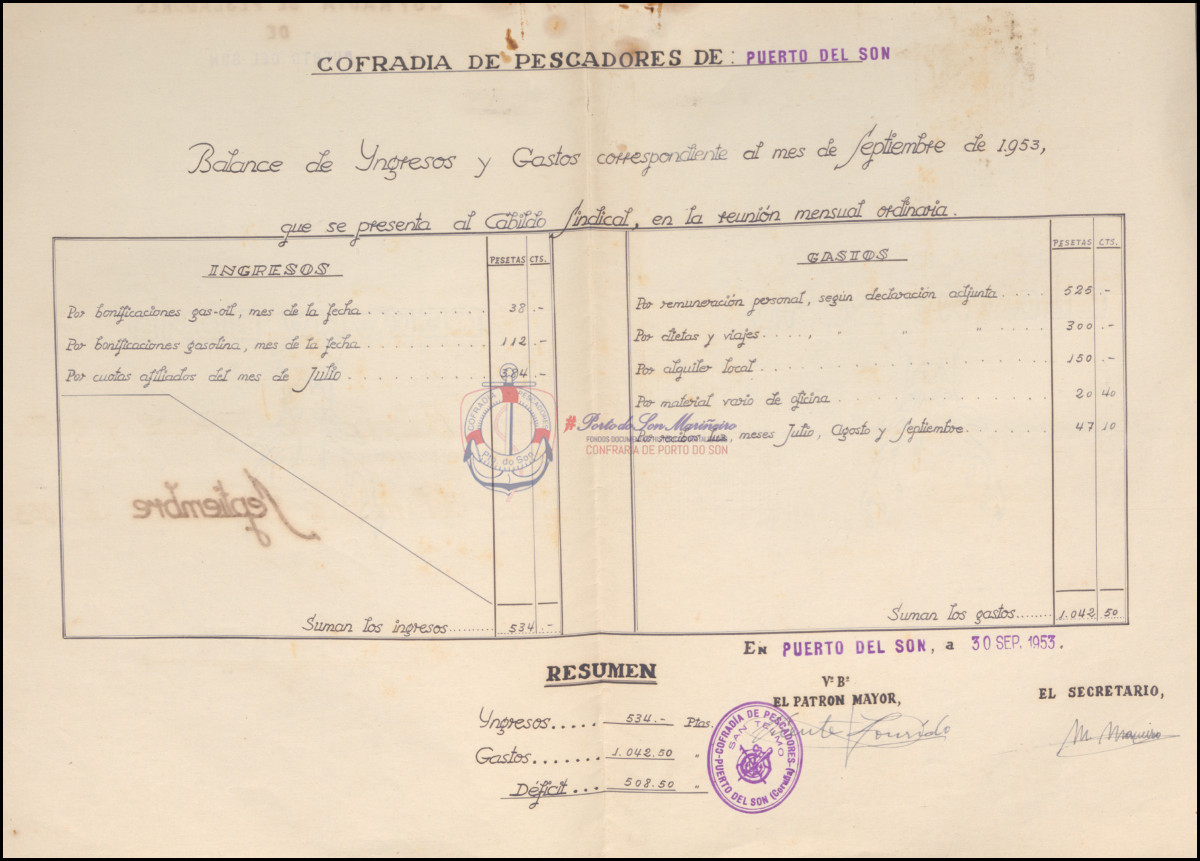 COFRADIA DE PESCADORES DE: PUERTO DEL SON
Balance de Yngresos y Gastos correspondiente al mes de Septiembre de 1.953,
que se presenta al Cabildo Sindical, en la reunión mensual ordinaria.
INGRESOS
PESETAS CTS.
Por bonificaciones gas-oil, mes de la fecha . . . . . . . . . . 38 .-
Por bonificaciones gasolina, mes de la fecha . . . . . . . . . . 112 .-
Por cuotas afiliados del mes de Julio . . . . . . . . . . . . 384 .-
Septiembre
Suman los ingresos.......... 534 .-
GASTOS
PESETAS CTS.
Por remuneración personal, según declaración adjunta . . . . . 525 .-
Por dietas y viajes . . . . , " " " . . . . . 300 .-
Por alquiler local . . . . . . . . . . . . . . . . . . . . . 150 .-
Por material vario de oficina . . . . . . . . . . . . . . . 20 40
Por recibos luz, meses Julio, Agosto y Septiembre . . . . . . . 47 10
Suman los gastos........ 1.042 50
COFRADIA PESCADORES
Pto. do Son
#Porto do Son Mariñeiro
CONFRARÍA DE PORTO DO SON
EN PUERTO DEL SON, a 30 SEP. 1953.
RESUMEN
Yngresos..... 534.- Ptas.
Gastos....... 1.042.50 "
Déficit... 508.50 "
Vº Bº
EL PATRON MAYOR,
EL SECRETARIO,
COFRADÍA DE PESCADORES
SAN TELMO
PUERTO DEL SON (Coruña)